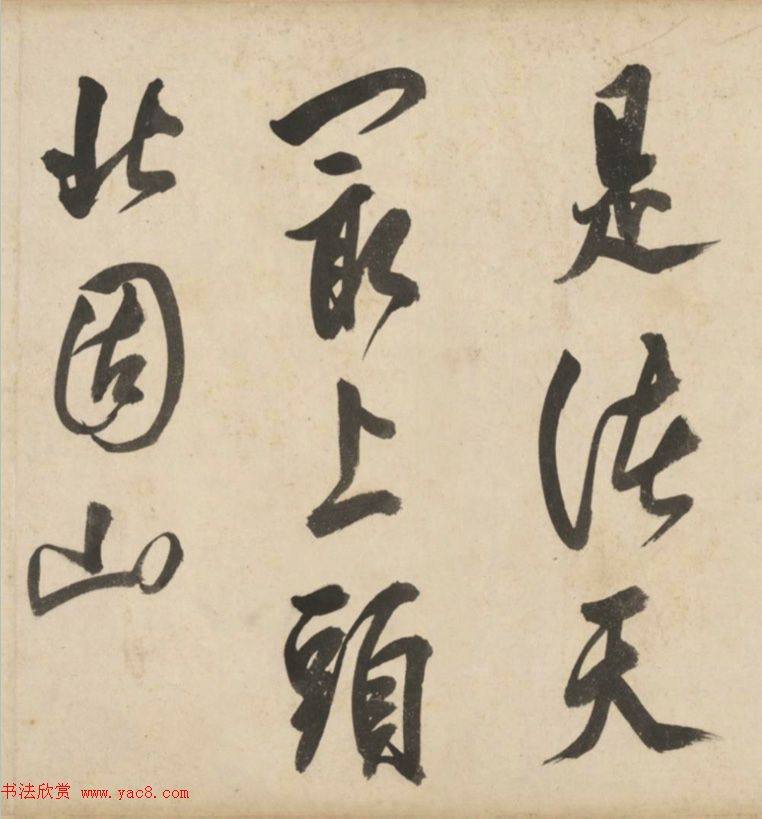 是諸天
冣上頭
北固山
书法欣赏 www.yac8.com